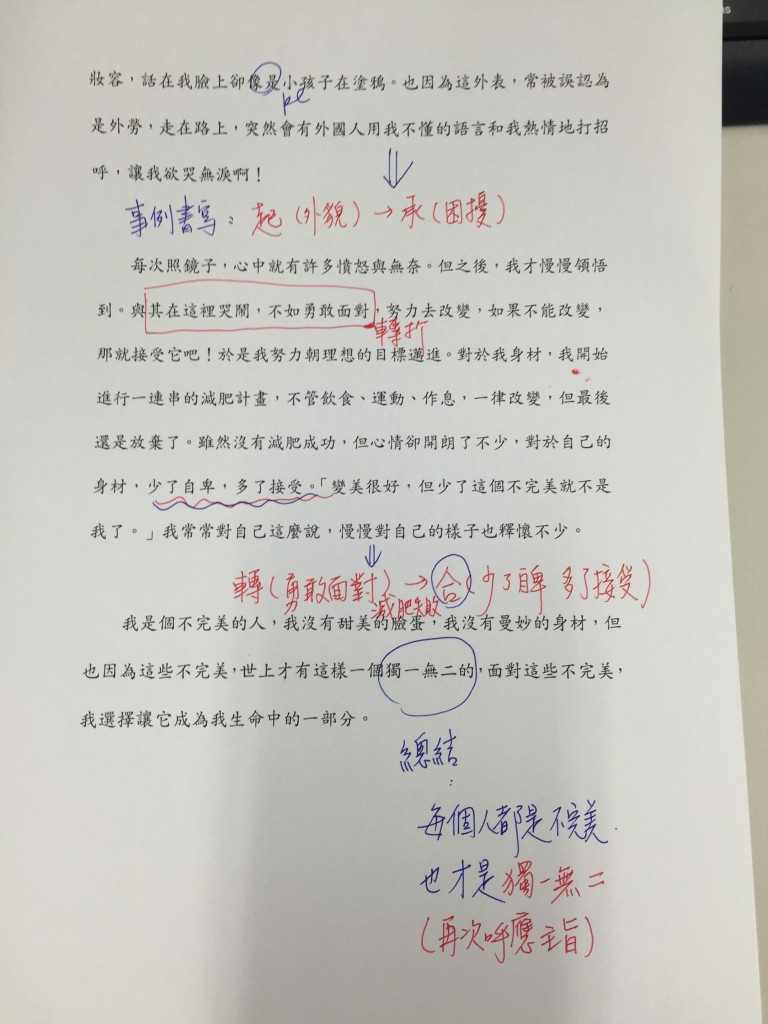 妝容，話在我臉上卻像是小孩子在塗鴉。也因為這外表，常被誤認為
是外勞，走在路上，突然會有外國人用我不懂的語言和我熱情地打招
呼，讓我欲哭無淚啊！
事例書寫：起（外貌）→承（困擾）
每次照鏡子，心中就有許多憤怒與無奈。但之後，我才慢慢領悟
到。與其在這裡哭鬧，不如勇敢面對，努力去改變，如果不能改變，
轉折
那就接受它吧！於是我努力朝理想的目標邁進。對於我身材，我開始
進行一連串的減肥計畫，不管飲食、運動、作息，一律改變，但最後
還是放棄了。雖然沒有減肥成功，但心情卻開朗了不少，對於自己的
身材，少了自卑，多了接受。「變美很好，但少了這個不完美就不是
我了。」我常常對自己這麼說，慢慢對自己的樣子也釋懷不少。
轉（勇敢面對）→合（少了 多了接受）
減肥失敗
我是個不完美的人，我沒有甜美的臉蛋，我沒有曼妙的身材，但
也因為這些不完美，世上才有這樣一個獨一無二的，面對這些不完美，
我選擇讓它成為我生命中的一部分。
總結
：
每個人都是不完美
也才是獨一無二
（再次呼應主旨）